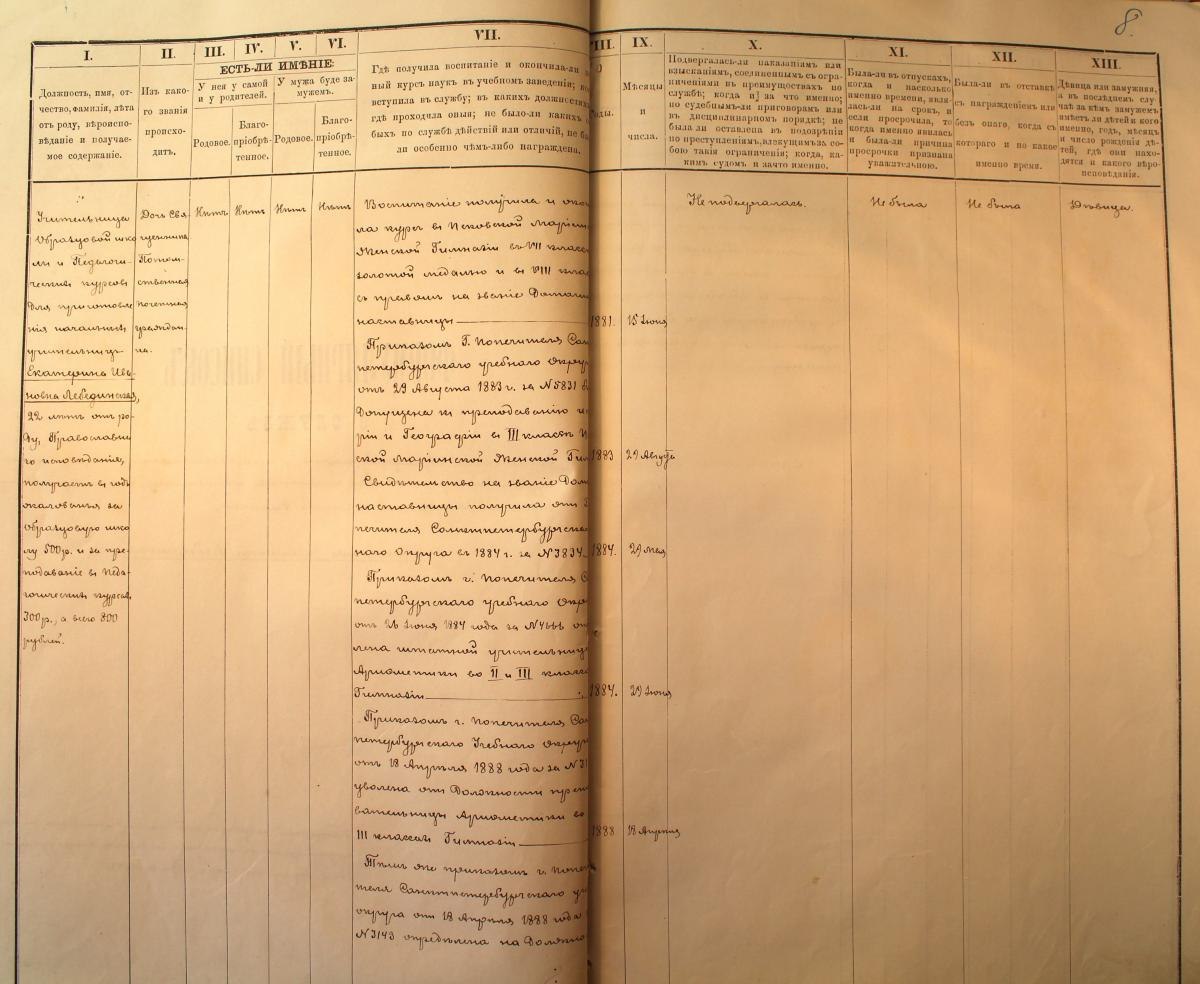 8.
I.
II.
III.
IV.
V.
VI.
VII.
VIII.
IX.
X.
XI.
XII.
XIII.
ЕСТЬ-ЛИ ИМѢНІЕ:
Должность, имя, от-
чество, фамилія, лѣта
отъ роду, вѣроиспо-
вѣданіе и получае-
мое содержаніе.
Изъ како-
го званія
происхо-
дитъ.
У нея у самой
и у родителей.
У мужа буде за-
мужемъ.
Родовое.
Благо-
пріобрѣ-
тенное.
Родовое.
Благо-
пріобрѣ-
тенное.
Гдѣ получила воспитаніе и окончила-ли
ный курсъ наукъ въ учебномъ заведеніи;
вступила въ службу; въ какихъ должностяхъ
гдѣ проходила оныя; не было-ли какихъ
быхъ по службѣ дѣйствій или отличій, не
ли особенно чѣмъ-либо награждена.
Годы.
Мѣсяцы
и
числа.
Подвергалась-ли наказаніямъ или
взысканіямъ, соединеннымъ съ огра-
ниченіями въ преимуществахъ по
службѣ; когда и за что именно;
по судебнымъ-ли приговорамъ или
въ дисциплинарномъ порядкѣ; не
была ли оставлена въ подозрѣніи
по преступленіямъ, влекущимъ за со-
бою такія ограниченія; когда, ка-
кимъ судомъ и за что именно.
Была-ли въ отпускахъ,
когда и насколько
именно времени, явля-
лась-ли на срокъ, и
если просрочила, то
когда именно явилась
и была-ли причина
просрочки признана
уважительною.
Была-ли въ отставкѣ
съ награжденіемъ или
безъ онаго, когда съ
котораго и по какое
именно время.
Дѣвица или замужняя,
а въ послѣднемъ слу-
чаѣ за кѣмъ замужемъ
имѣетъ ли дѣтей и кого
именно, годъ, мѣсяцъ
и число рожденія дѣ-
тей, гдѣ они нахо-
дятся и какого вѣро-
исповѣданія.
Учительница
Образцовой шко
лы и Педагоги-
ческихъ курсовъ
для приготовле
нія начальныхъ
учительницъ
Екатерина Ива-
новна Лебединская,
22 лѣтъ отъ ро-
ду, Православна
го исповѣданія,
получаетъ въ годъ
жалованья за
Образцовую шко
лу 500 р. и за пре-
подаваніе въ Педа-
гогическихъ курсахъ
300 р., а всего 800
рублей.
Дочь Свя-
щенника,
Потом-
ственная
почетная
граждан-
ка.
Нѣтъ
Нѣтъ
Нѣтъ
Нѣтъ
Воспитаніе получила и око
ла курсъ въ Псковской Маріин
Женской Гимназіи въ VII классѣ
золотой медалью и въ VIII кла
съ правомъ на званіе Домашн
наставницы
1881.
15 Іюня
Приказомъ Г. Попечителя Сан
петербургскаго учебнаго Округ
отъ 29 Августа 1883 г. за N 5831
допущена къ преподаванію
ріи и Географіи въ III классѣ
ской Маріинской Женской Гим
1883
29 Августа
Свидѣтельство на званіе Дом
наставницы получила отъ
печителя Санктпетербургска
наго Округа въ 1884 г. за N 3834
1884.
29 мая
Приказомъ г. Попечителя С
петербургскаго учебнаго Окру
отъ 26 Іюня 1884 года за N 4666
лена штатной учительниц
Ариѳметики во II и III класс
Гимназіи
1884.
29 Іюня
Приказомъ г. Попечителя Сан
петербургскаго Учебнаго Округ
отъ 18 Апрѣля 1888 года за N 31
уволена отъ Должности преп
вательницы Ариѳметики во
III классахъ Гимназіи
1888
18 Апрѣля
Тѣмъ же приказомъ г. Попеч
теля Санктпетербургскаго уч
округа отъ 18 Апрѣля 1888 года
N 3143 опредѣлена на Должно
Не подвергалась.
Не была
Не была
Дѣвица.